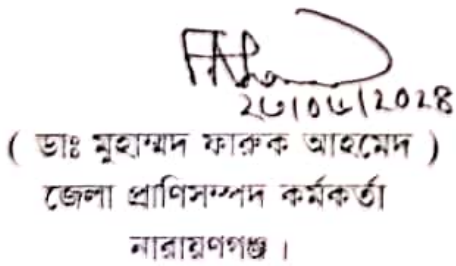 ( ডাঃ মুহাম্মদ ফারুক আহমেদ )
জেলা প্রাণিসম্পদ কর্মকর্তা
নারায়ণগঞ্জ ।